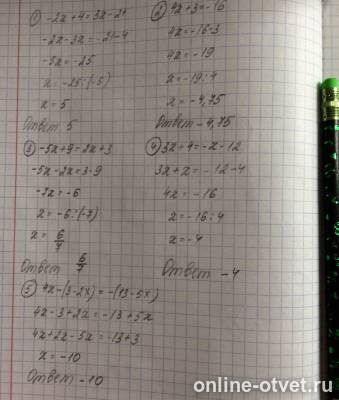 ① -2x+4=3x-21
-2x-3x=-21-4
-5x=-25
x=-25:(-5)
x=5
Ответ 5
② 4x+3=-16
4x=-16-3
4x=-19
x=-19:4
x=-4,75
Ответ -4,75
③ -5x+9=2x+3
-5x-2x=3-9
-7x=-6
x=-6:(-7)
x=6/7
Ответ 6/7
④ 3x+4=-x-12
3x+x=-12-4
4x=-16
x=-16:4
x=-4
Ответ -4
⑤ 4x-(3-2x)=-(13-5x)
4x-3+2x=-13+5x
4x+2x-5x=-13+3
x=-10
Ответ -10
online-otvet.ru